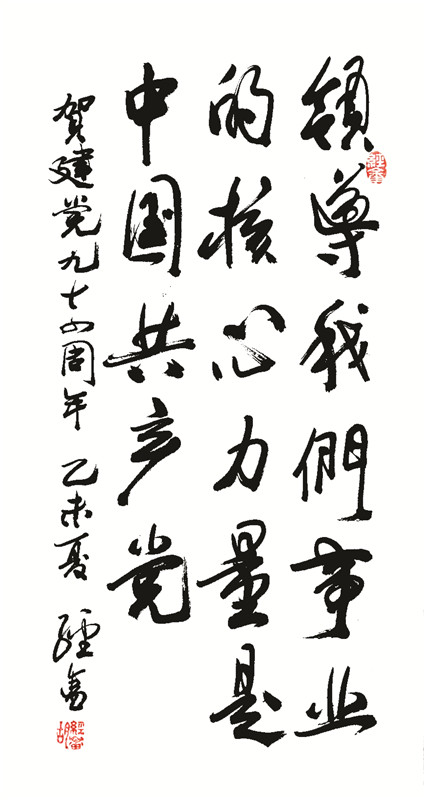 領導我們事业
的核心力量是
中国共产党
贺建党九十四周年 乙未夏 經畬